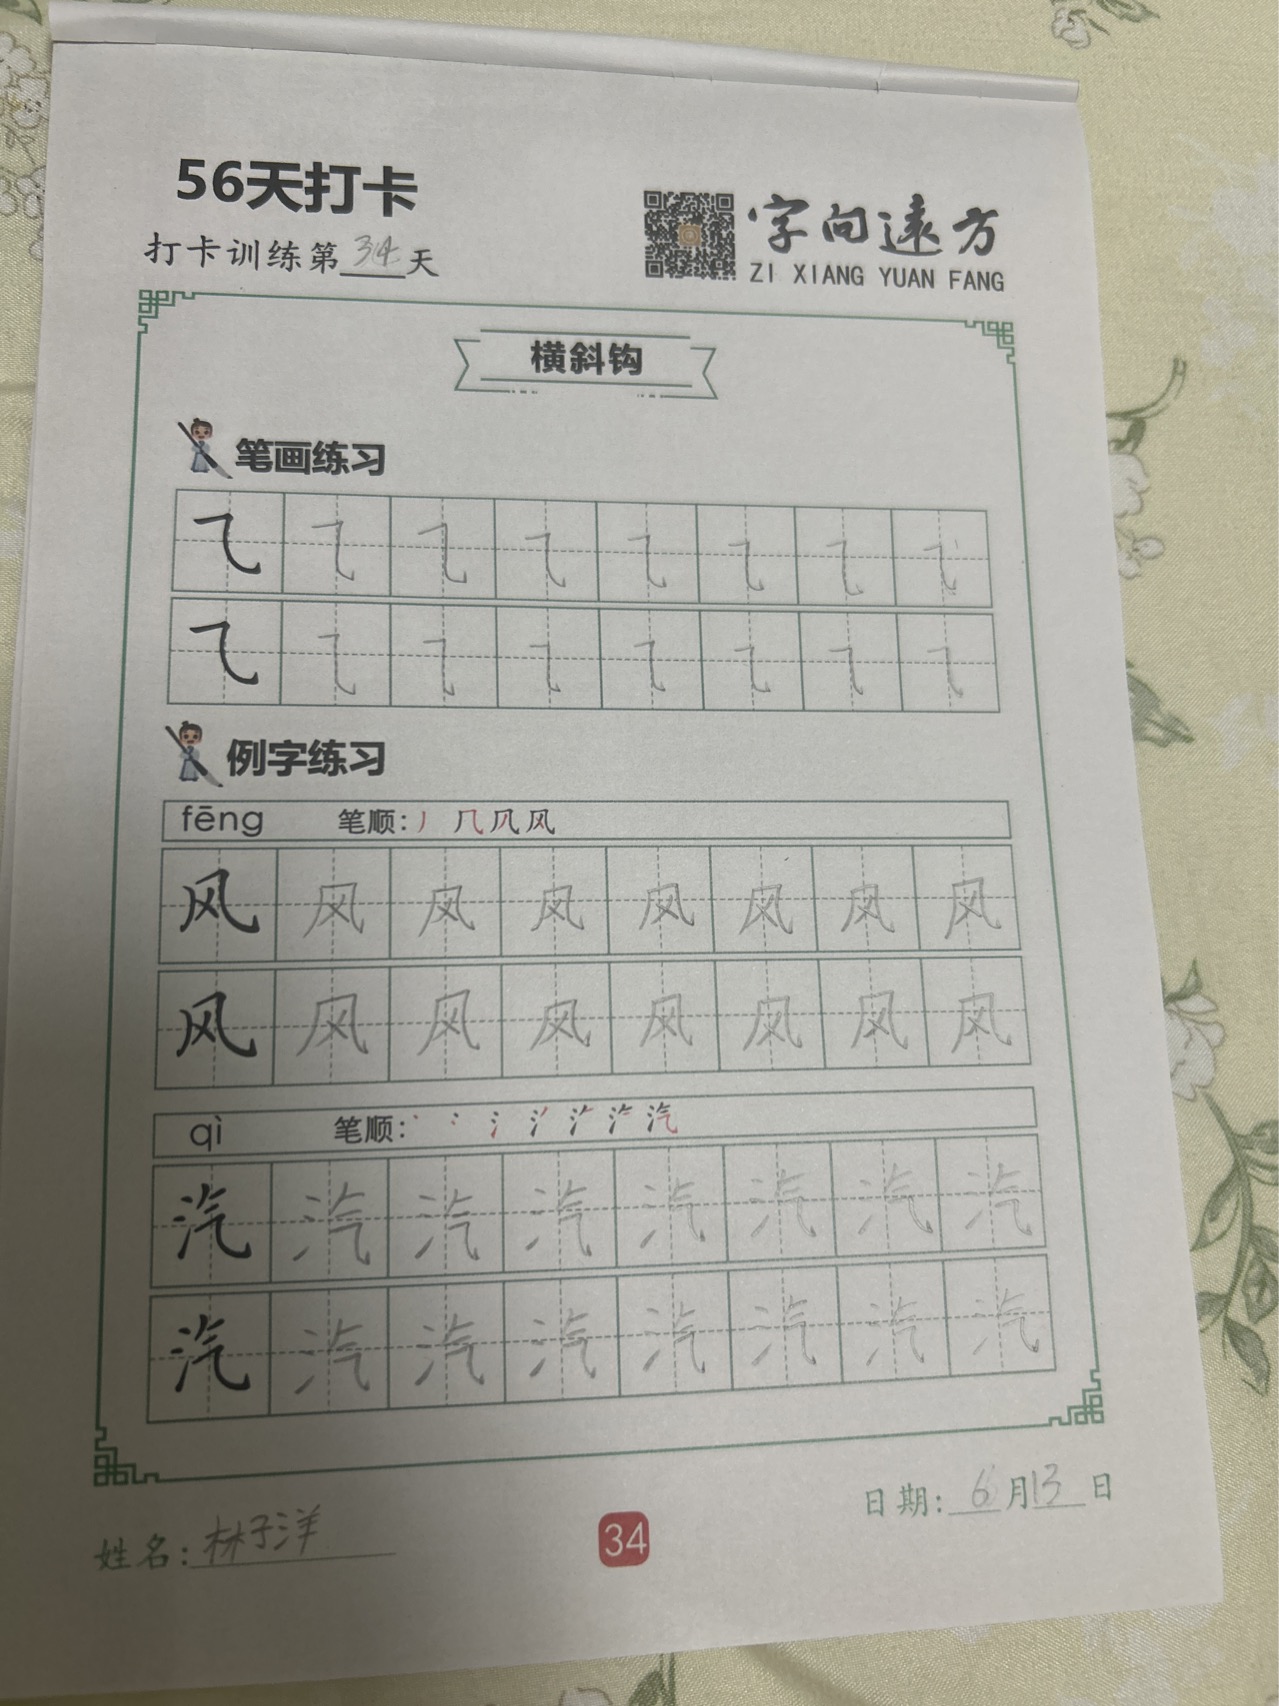 56天打卡
打卡训练第34天
字向远方
ZI XIANG YUAN FANG
横斜钩
笔画练习
㇈ ㇈ ㇈ ㇈ ㇈ ㇈ ㇈ ㇈
㇈ ㇈ ㇈ ㇈ ㇈ ㇈ ㇈ ㇈
例字练习
fēng 笔顺: 丿 几 凤 风
风 风 风 风 风 风 风 风
风 风 风 风 风 风 风 风
qì 笔顺:
汽 汽 汽 汽 汽 汽 汽 汽
汽 汽 汽 汽 汽 汽 汽 汽
姓名: 林子洋
34
日期: 6月13日